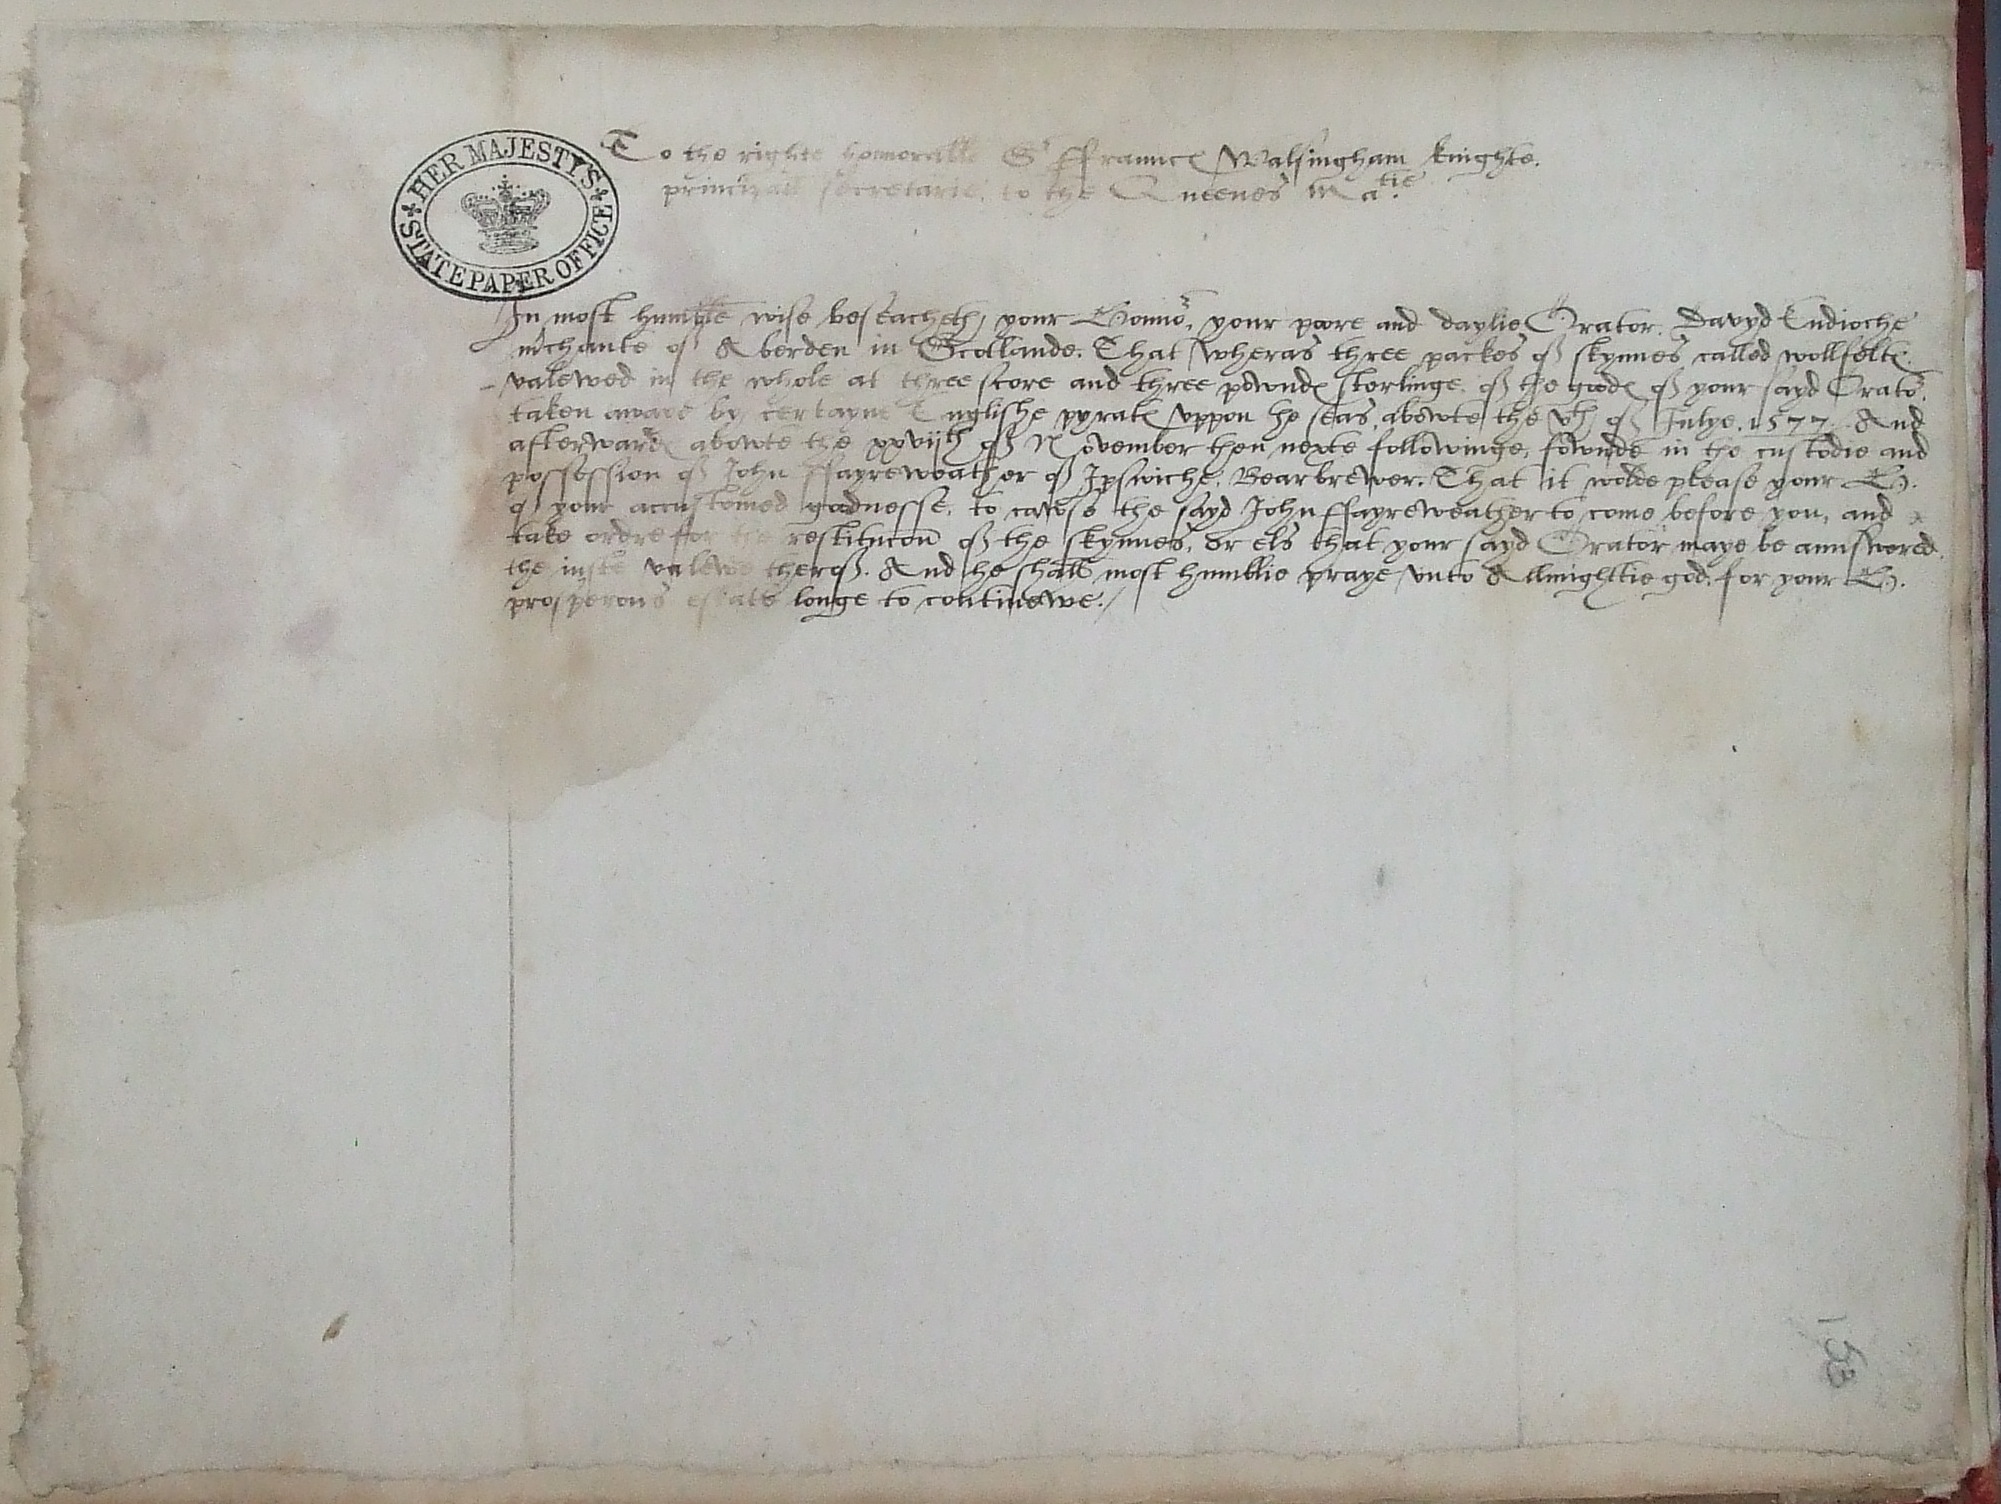 HER MAJESTY'S
STATE PAPER OFFICE
To the righte honorable Sr Ffrauncs Walsingham knighte.
principall secretarie, to the Queenes Matie.
In most humble wise beseacheth, your Honno͏r, your poore and daylie Orator, Davyd Endioche
m͏rchante of Aberden in Scotlande. That wheras three packes of skynnes called wollfelts
valewed in the whole at three score and three pownds sterlinge, of the goods of your sayd Orato͏r,
taken awaie by certayne Englishe pyrats uppon he seas, abowte the vth of Julye. 1577. And
afterwards abowte the xxviijth of November then nexte followinge, fownde in the custodie and
possession of John Ffayreweather of Ipswiche, Bearbrewer. That it wolde please your H.
of your accustomed goodnesse, to cawse the sayd John Ffayreweather to come before you, and
take ordre for the restitucon of the skynnes, or els that your sayd Orator maye be aunswered
the juste valewe therof. And he shall most humblie praye unto Allmightie god, for your H.
prosperous estate longe to continewe./
153